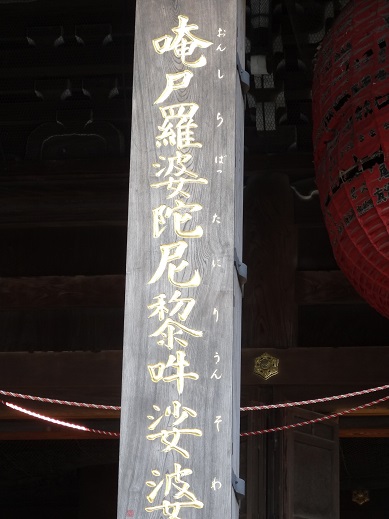 唵尸羅婆陀尼黎吽娑婆
おん し ら ばっ た に り うん そ わ